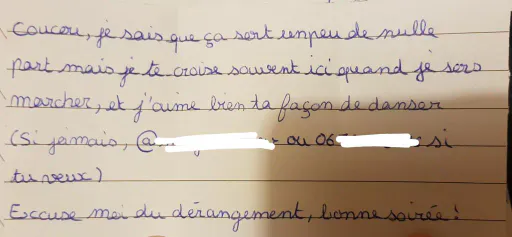 Coucou, je sais que ça sort unpeu de nulle
part mais je te croise souvent ici quand je sors
marcher, et j'aime bien ta façon de danser
(Si jamais, @ ou 06 si
tu veux)
Excuse moi du dérangement, bonne soirée!